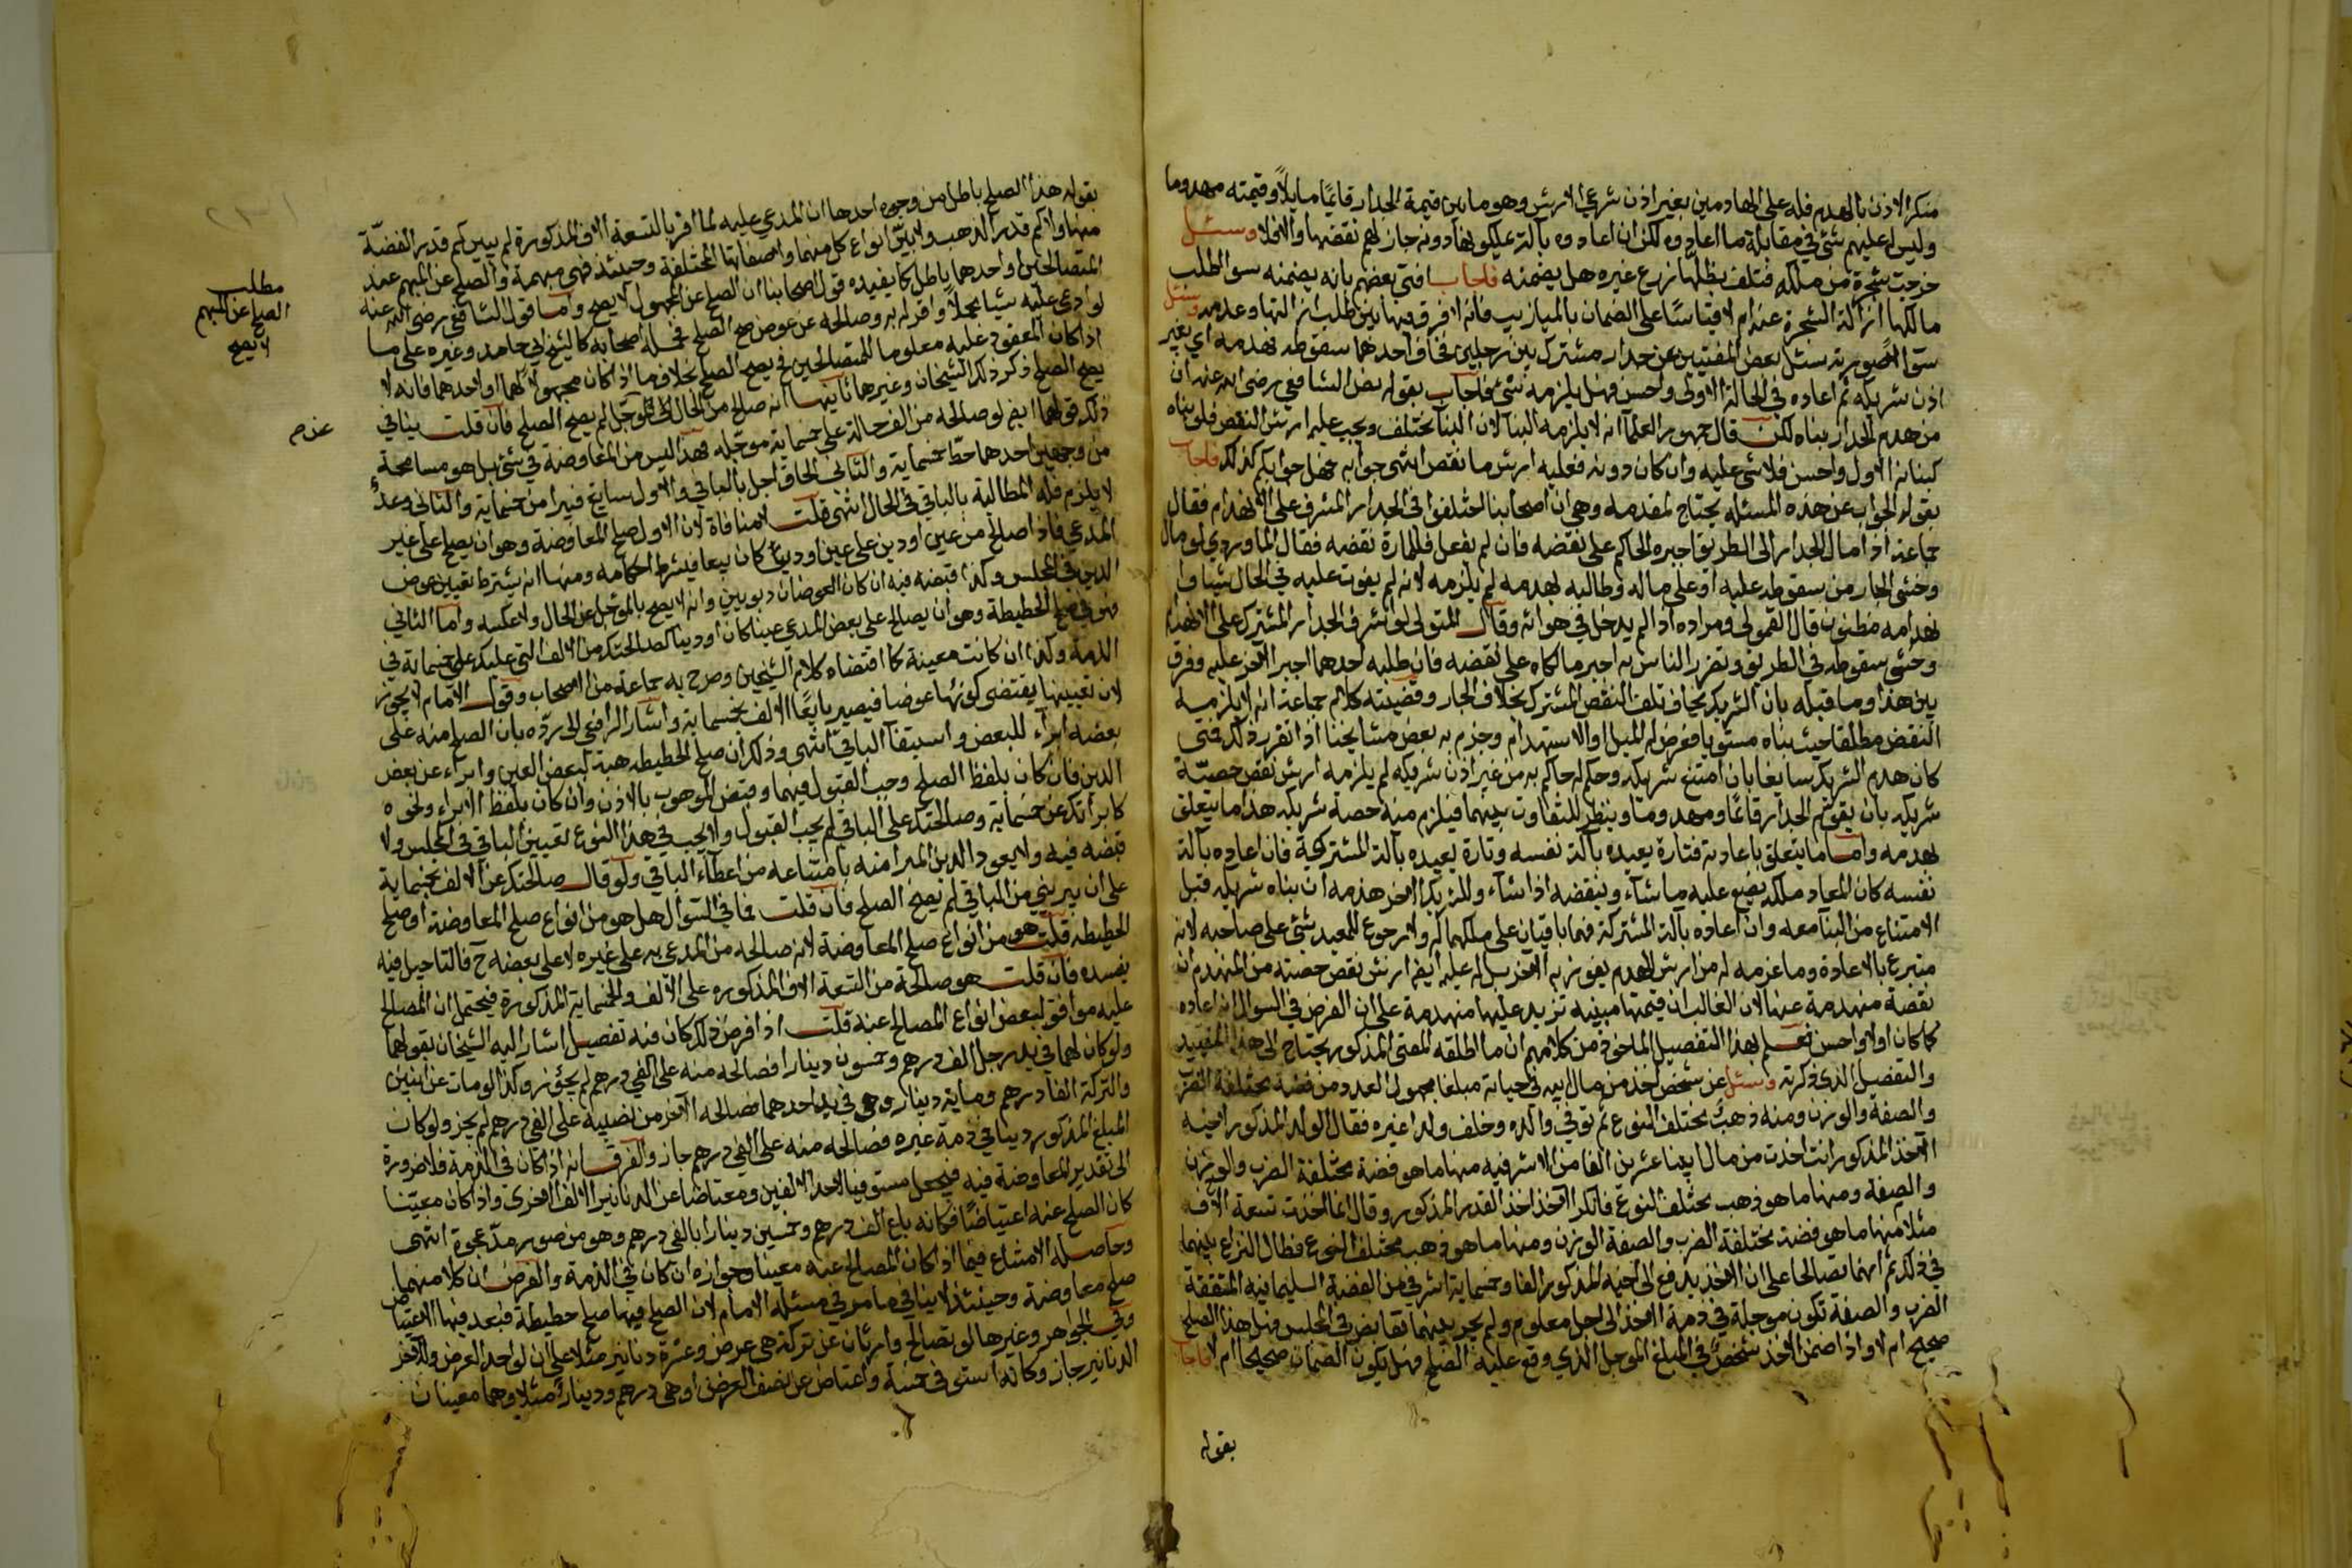 منكرا لاذن بالهدم فله على الهادمين بغير اذن شرعي الارش وهو ما بين قيمة الجدار قايما مايلا وقيمته مهدوما
وليس له عليهم شئ في مقابلة ما اعادوه لكن ان اعادوه بآلة عليكو لهادونه جاز لهم نقضها والا فلا وسئل
خرجت شجرة من ملكه فتلف بظلها زرع غيره هل يضمنه فاجاب افتى بعضهم بانه يضمنه سوا طلب
مالكها ازالة الشجرة عنه ام لا قياسا على الضمان بالميازيب فانه لا فرق فيها بين طلب ازالتها وعدمه وسئل
سؤالا صورته سئل بعض المفتيين عن جدار مشترك بين رجلين فخاف احدهما سقوطه فهدمه اي بغير
اذن شريكه ثم اعاده في الحالة الاولى واحسن فهل يلزمه شئ فاجاب بقوله نص الشافعي رضي الله عنه ان
من هدم الجدار بناه لكن قال جمهور العلما انه لا يلزمه البنا لان البنا يختلف ويجب عليه ارش النقص فلو بناه
كبنائه الاول واحسن فلا شئ عليه وان كان دونه فعليه ارش ما نقص انتهى جوابه فهل جوابكم كذلك فاجاب
بقوله الجواب عن هذه المسئلة يحتاج لمقدمة وهي ان اصحابنا اختلفوا في الجدار المشرف على الانهدام فقال
جماعة اذا مال الجدار الى الطريق اجبره الحاكم على نقضه فان لم يفعل فللمارة نقضه فقال الماوردي لو مال
وخشي الجار من سقوطه عليه او على ماله وطالبه بهدمه لم يلزمه لانه لم يفوت عليه في الحال شيا وا
نهدامه مظنون قال القمولي ومراده اذا لم يدخل في هوائه وقال المتولي لو اشرف الجدار المشترك على الانهدام
وخشي سقوطه في الطريق وتضرر الناس به اجبر مالكاه على نقضه فان طلبه احدهما اجبر الآخر عليه وفرق
بين هذا وما قبله بان الشريك يخاف تلف النقض المشترك بخلاف الجار وقضيته كلام جماعة انه لا يلزمه
النقض مطلقا حيث بناه مستويا فعرض له الميل او الاستهدام وجزم به بعض مشايخنا اذا تقرر ذلك فمتى
كان هدم الشريك سايغا بان امتنع شريكه وحكم له حاكم به من غير اذن شريكه لم يلزمه ارش نقص حصة
شريكه بان يقوم الجدار قائما ومهدوما وينظر للتفاوت بينهما فيلزم منه حصة شريكه هذا ما يتعلق
بهدمه واما ما يتعلق باعادته فتارة يعيده بآلة نفسه وتارة يعيده بآلته المشتركة فان اعاده بآلة
نفسه كان المعاد ملكه يضع عليه ما شاء وينقضه اذا شاء وللشريك الآخر هدمه ان بناه شريكه قبل
الامتناع من البنا معه وان اعاده بآلته المشتركة فهما باقيان على ملكهما له ولا رجوع للمعيد بشئ على صاحبه لانه
متبرع بالاعادة وما غرمه له من ارش الهدم يفوز به الآخر بل له عليه ايضا ارش نقص حصته من المنهدم ان
نقصة منهدمة عنها لان الغالب ان قيمتها مبنية تزيد عليها منهدمة على ان الفرض في السوال انه اعاده
كما كان اولا واحسن فعلم بهذا التفصيل الماخوذ من كلامهم ان ما اطلقه المفتي المذكور يحتاج الى هذا التقييد
والتفصيل الذي ذكرته وسئل عن شخص اخذ من مال ابيه في حياته مبلغا مجهول العدد من فضة مختلفة الضرب
والصفة والوزن ومنه ذهب مختلف النوع ثم توفي والده وخلف ولدا غيره فقال الولد المذكور لاخيه
الآخذ المذكور انت اخذت من مال ابينا عشرين الفا من الاشرفيه منها ما هو فضة مختلفة الضرب والوزن
والصفة ومنها ما هو ذهب مختلف النوع فانكر الآخذ اخذ القدر المذكور وقال انما اخذت تسعة آلاف
مثلا منها ما هو فضة مختلفة الضرب والصفة الوزن ومنها ما هو ذهب مختلف النوع فطال النزاع بينهما
في ذلك ثم انهما تصالحا على ان الآخذ يدفع الى اخيه المذكور الفا وخمسماية اشرفي من الفضة السليمانية المتفقة
الضرب والصفة تكون موجلة في ذمة الآخذ الى اجل معلوم ولم يجر بينهما تقابض في المجلس فهل هذا الصلح
صحيح ام لا واذا ضمن الآخذ شخص في المبلغ الموجل الذي وقع عليه الصلح فهل يكون الضمان صحيحا ام لا فاجاب
بقوله
بقوله هذا الصلح باطل من وجوه احدها ان المدعي عليه لما اقر بالتسعة آلاف المذكورة لم يبين كم قدر الفضة
منها ولا كم قدر الذهب ولا بين انواع كل منهما واصفاتها المختلفة وحينئذ فهي مبهمة والصلح عن المبهم عند
المتصالحين او احدهما باطل كما يفيده قول اصحابنا ان الصلح عن المجهول لا يصح واما قول الشافعي رضي الله عنه
لو ادعى عليه شيا مجملا واقر له به وصالحه عنه عوض صح الصلح فحمله اصحابه كالشيخ ابي حامد وغيره على ما
اذا كان المعقود عليه معلوما للمتصالحين فيصح الصلح بخلاف ما اذا كان مجهولا لهما او لاحدهما فانه لا
يصح الصلح ذكر ذلك الشيخان وغيرهما ثانيها انه صالح من الحال على مؤجل لم يصح الصلح فان قلت ينافي
ذلك قولهما ايضا لو صالحه من الف حالة على خمسماية موجله فهذا ليس من المعاوضة في شئ بل هو مسامحة
من وجهين احدهما حط خمسماية والثاني الحاق اجل بالباقي والاول سايغ فيبرا من خمسماية والثاني وعد
لا يلزم فله المطالبة بالباقي في الحال انتهى قلت لا منافاة لان الاول صلح المعاوضة وهو ان يصلح على غير
المدعي فاذا صالح من عين او دين على عين او دين كان بيعا فيشترط احكامه ومنها انه يشترط تعيين عوض
الدين في المجلس وكذا قبضه فيه ان كان العوضان ربويين وانه لا يصح بالموجل عن الحال ولا عكسه واما الثاني
فهو في صلح الحطيطة وهو ان يصالح على بعض المدعي عينا كان او دينا كصالحتك من الالف التي عليك على خمسماية في
الذمة وكذا ان كانت معينة كما اقتضاه كلام الشيخين وصرح به جماعة من الاصحاب وقول الامام لا يجوز
لان تعيينها يقتضي كونها عوضا فيصير بايعا الالف بخمسماية واشار الرافعي الى رده بان الصلح منه على
بعضه ابراء للبعض واستيفاء الباقي انتهى وذلك ان صلح الحطيطه هبة لبعض العين وابراء عن بعض
الدين فان كان بلفظ الصلح وجب القبول فيهما وقبض الموهوب بالاذن وان كان بلفظ الابراء ونحوه
كابراتك عن خمسماية وصالحتك على الباقي لم يجب القبول ولا يجب في هذا النوع تعيين الباقي في المجلس ولا
قبضه فيه ولا يعود الدين المبرا منه بامتناعه من اعطاء الباقي ولو قال صالحتك عن الالف بخمسماية
على ان يبريني من الباقي لم يصح الصلح فان قلت فما في السؤال هل هو من انواع صلح المعاوضة او صلح
الحطيطه قلت هو من انواع صلح المعاوضة لانه صالحه من المدعي به على غيره لا على بعضه ح فالتاجيل فيه
يفسده فان قلت هو صالحة من التسعة الاف المذكوره على الالف والخمسماية المذكورة فيحتمل ان المصالح
عليه موافق لبعض انواع المصالح عنه قلت اذا فرض ذلك كان فيه تفصيل اشار اليه الشيخان بقولهما
ولو كان لهما في يد رجل الف درهم وخمسون دينارا فصالحه منه على الفي درهم لم يجز وكذا لو مات عن ابنين
والتركة الفا درهم وماية دينار وهي في يد احدهما فصالحه الآخر من نصيبه على الفي درهم لم يجز ولو كان
المبلغ المذكور دينا في ذمة غيره فصالحه منه على الفي درهم جاز والفرق انه اذا كان في الذمة فلا ضرورة
الى تقدير المعاوضة فيه فيجعل مستوفيا لاحد الالفين ومعتاضا عن الدنانير الالف الاخرى واذا كان معينا
كان الصلح عنه اعتياضا فكانه باع الف درهم وخمسين دينارا بالفي درهم وهو من صور مد عجوة انتهى
وحاصله الامتناع فيما اذا كان المصالح عنه معينا وجوازه ان كان في الذمة والفرض ان كلا منهما
صلح معاوضة وحينئذ لا ينافي ما مر في مسئلة الامام لان الصلح فيها صلح حطيطة فبعد فيها الاعتياض
وفي الجواهر وغيرها لو تصالح وارثان عن تركة هي عرض وعشرة دنانير مثلا على ان لواحد العرض والآخر
الدنانير جاز وكانه استوفى خمسة واعتاض عن نصف العرض او هي درهم ودينار مثلا وهما معينان
مطلب
الصلح عن المبهم
لا يصح